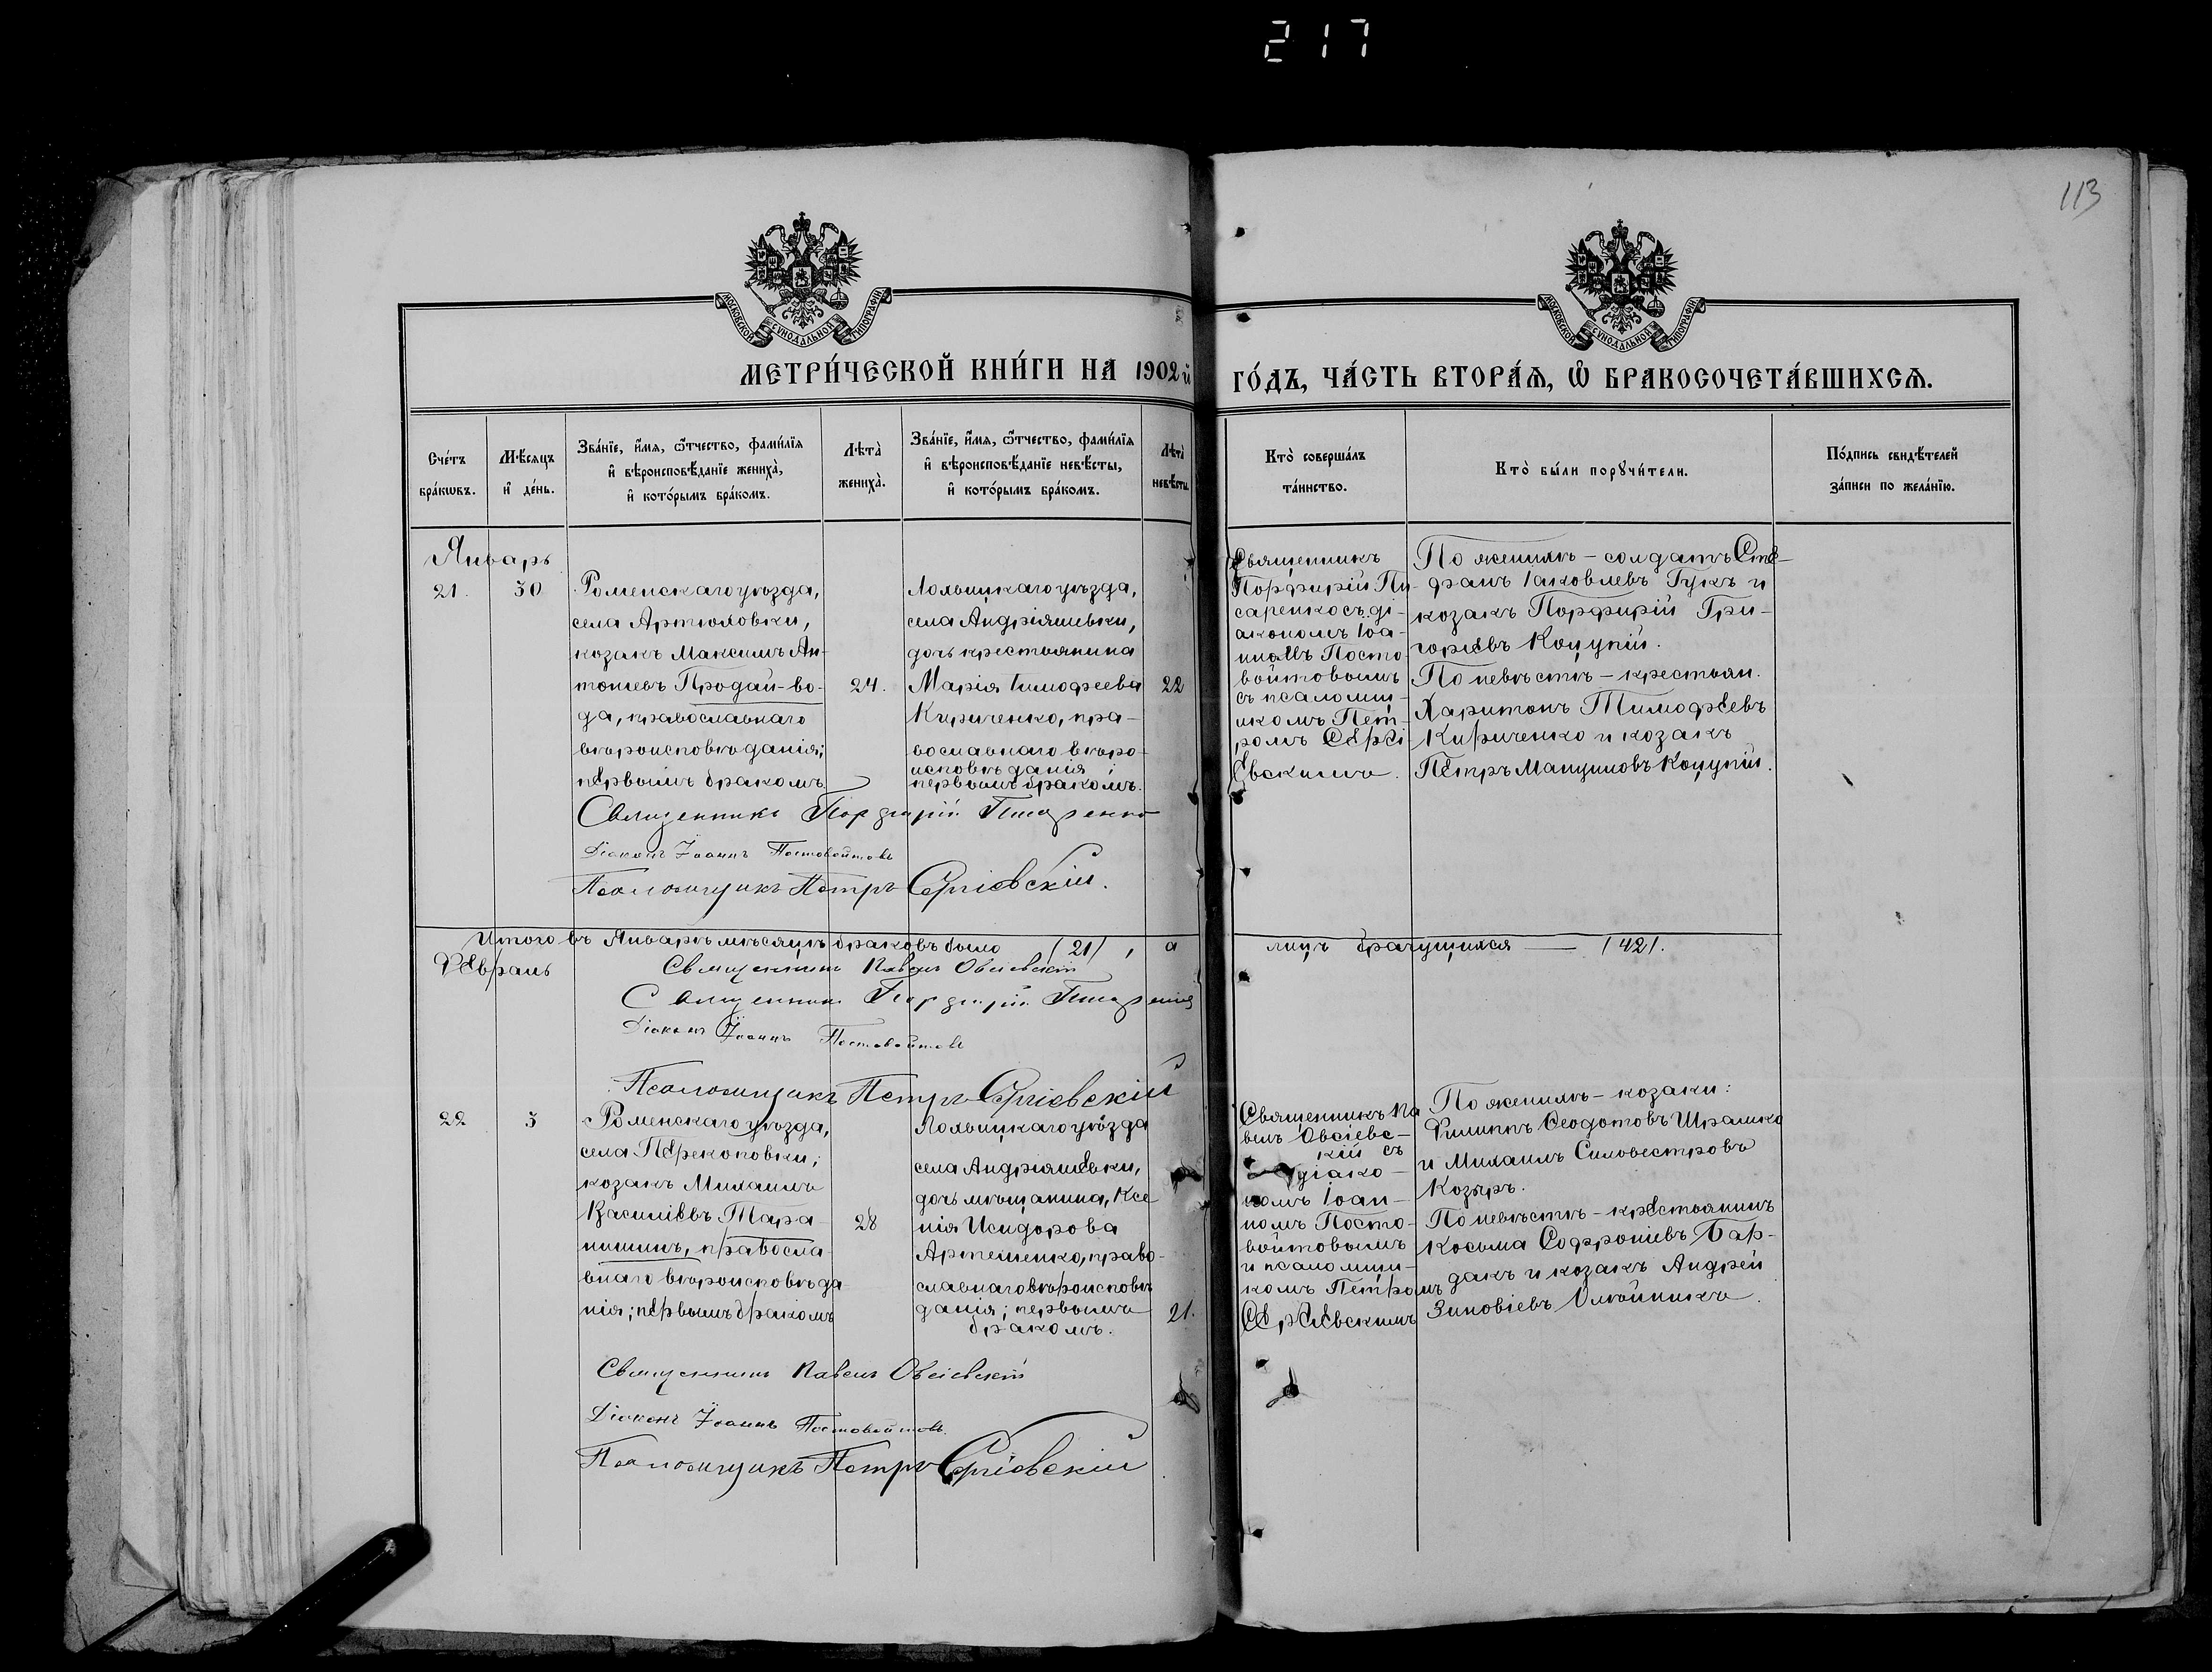 217
113
МОСКОВСКОЙ СѴНОДАЛЬНОЙ ТИПОГРАФІИ
МОСКОВСКОЙ СѴНОДАЛЬНОЙ ТИПОГРАФІИ
МЕТРИ́ЧЕСКОЙ КНИ́ГИ НА 1902й ГО́ДЪ, ЧА́СТЬ ВТОРА́Я, Ѽ БРАКОСОЧЕТА́ВШИХСЯ.
Сче́тъ
бра́кѡвъ.
Мѣ́сяцъ
и҆ де́нь.
Зва́нїе, и҆́мя, ѻ҆́тчество, фами́лїя
и҆ вѣроисповѣ́данїе жениха̀,
и҆ кото́рымъ бра́комъ.
Лѣта̀
жениха̀.
Зва́нїе, и҆́мя, ѻ҆́тчество, фами́лїя
и҆ вѣроисповѣ́данїе невѣ́сты,
и҆ кото́рымъ бра́комъ.
Лѣта̀
невѣ́сты.
Кто̀ соверша́лъ
та́инство.
Кто̀ бы́ли порꙋчи́тели.
По́дпись свидѣ́телей
за́писи по жела́нїю.
Январь
21. 30
Роменскаго уѣзда,
села Артюховки,
козакъ Максимъ Ан-
тоніевъ Продай-во-
да, православнаго
вѣроисповѣданія;
первымъ бракомъ
24.
Лохвицкаго уѣзда,
села Андріяшевки,
дочь крестьянина
Марія Тимофеева
Кириченко, пра-
вославнаго вѣро-
исповѣданія;
первымъ бракомъ.
22
Священникъ
Порфирій Пи-
саренко съ ді-
акономъ Іоа-
нномъ Посто-
войтовымъ
съ псаломщ-
икомъ Пет-
ромъ Сергі-
евскимъ.
По женихѣ – солдатъ Сте-
фанъ Іаковлевъ Гукъ и
козакъ Порфирій Гри-
горіевъ Коцупій.
По невѣстѣ – крестьян.
Харитонъ Тимофеевъ
Кириченко и козакъ
Петръ Мануиловъ Коцупій.
Священникъ Порфирій Писаренко
Діаконъ Іоаннъ Постовойтовъ
Псаломщикъ Петръ Сергіевскій.
Итого въ Январѣ мѣсяцѣ браковъ было (21), а лицъ брачущихся — (42).
Февраль
Священникъ Павелъ Овсіевскій
Священникъ Порфирій Писаренко
Діаконъ Іоаннъ Постовойтовъ
Псаломщикъ Петръ Сергіевскій
22 3
Роменскаго уѣзда,
села Перекоповки;
козакъ Михаилъ
Василіевъ Тара-
нишинъ, правосла-
внаго вѣроисповѣда
нія; первымъ бракомъ
28
Лохвицкаго уѣзда
села Андріяшевки,
дочь мѣщанина, Ксе
нія Исидорова
Артеменко, право-
славнаго вѣроисповѣ
данія; первымъ
бракомъ.
21.
Священникъ Па
велъ Овсіевс-
кій съ
діако-
номъ Іоан-
номъ Посто-
войтовымъ
и псаломщи-
комъ Петромъ
Сергіевскимъ
По женихѣ – козаки:
Филиппъ Ѳеодотовъ Шрамко
и Михаилъ Силовестровъ
Козыръ.
По невѣстѣ – крестьянинъ
Косьма Софроніевъ Бар-
дакъ и козакъ Андрей
Зиновіевъ Олѣйникъ.
Священникъ Павелъ Овсіевскій
Діаконъ Іоаннъ Постовойтовъ.
Псаломщикъ Петръ Сергіевскій